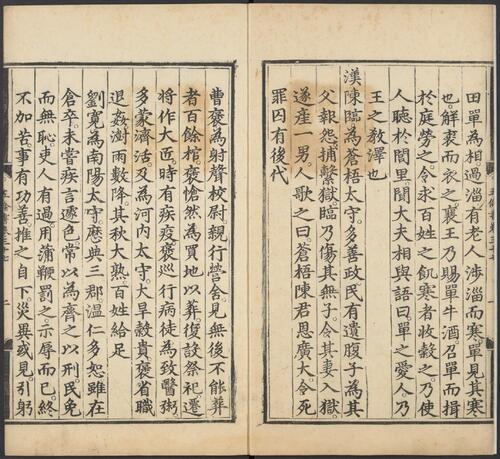 田單為相過淄有老人渉淄而寒單見其寒
也解衣而衣之襄王乃賜單牛酒召單而揖
於庭勞之令求百姓之飢寒者收穀之乃使
人聽於閭里聞大夫相與語曰單之愛人乃
王之教澤也
漢陳臨為蒼梧太守多善政民有遺腹子為其
父報怨捕繫獄臨乃傷其無子令其妻入獄
遂産一男人歌之曰蒼梧陳君恩廣大令死
罪囚有後代
曹褒為射聲校尉親行營舍見無後不能葬
者百餘棺褒愴然為買地以葬復設祭祀遷
將作大匠時有疾疫褒巡行病徒為致醫粥
多蒙濟活及為河内太守大旱穀貴褒省職
退姦澍雨數降其秋大熟百姓給足
劉寛為南陽太守歴典三郡溫仁多恕雖在
倉卒未嘗疾言遽色常以為齊之以刑民免
而無恥吏人有過用蒲鞭罰之示辱而已終
不加苦事有功善推之自下災異或見引躬